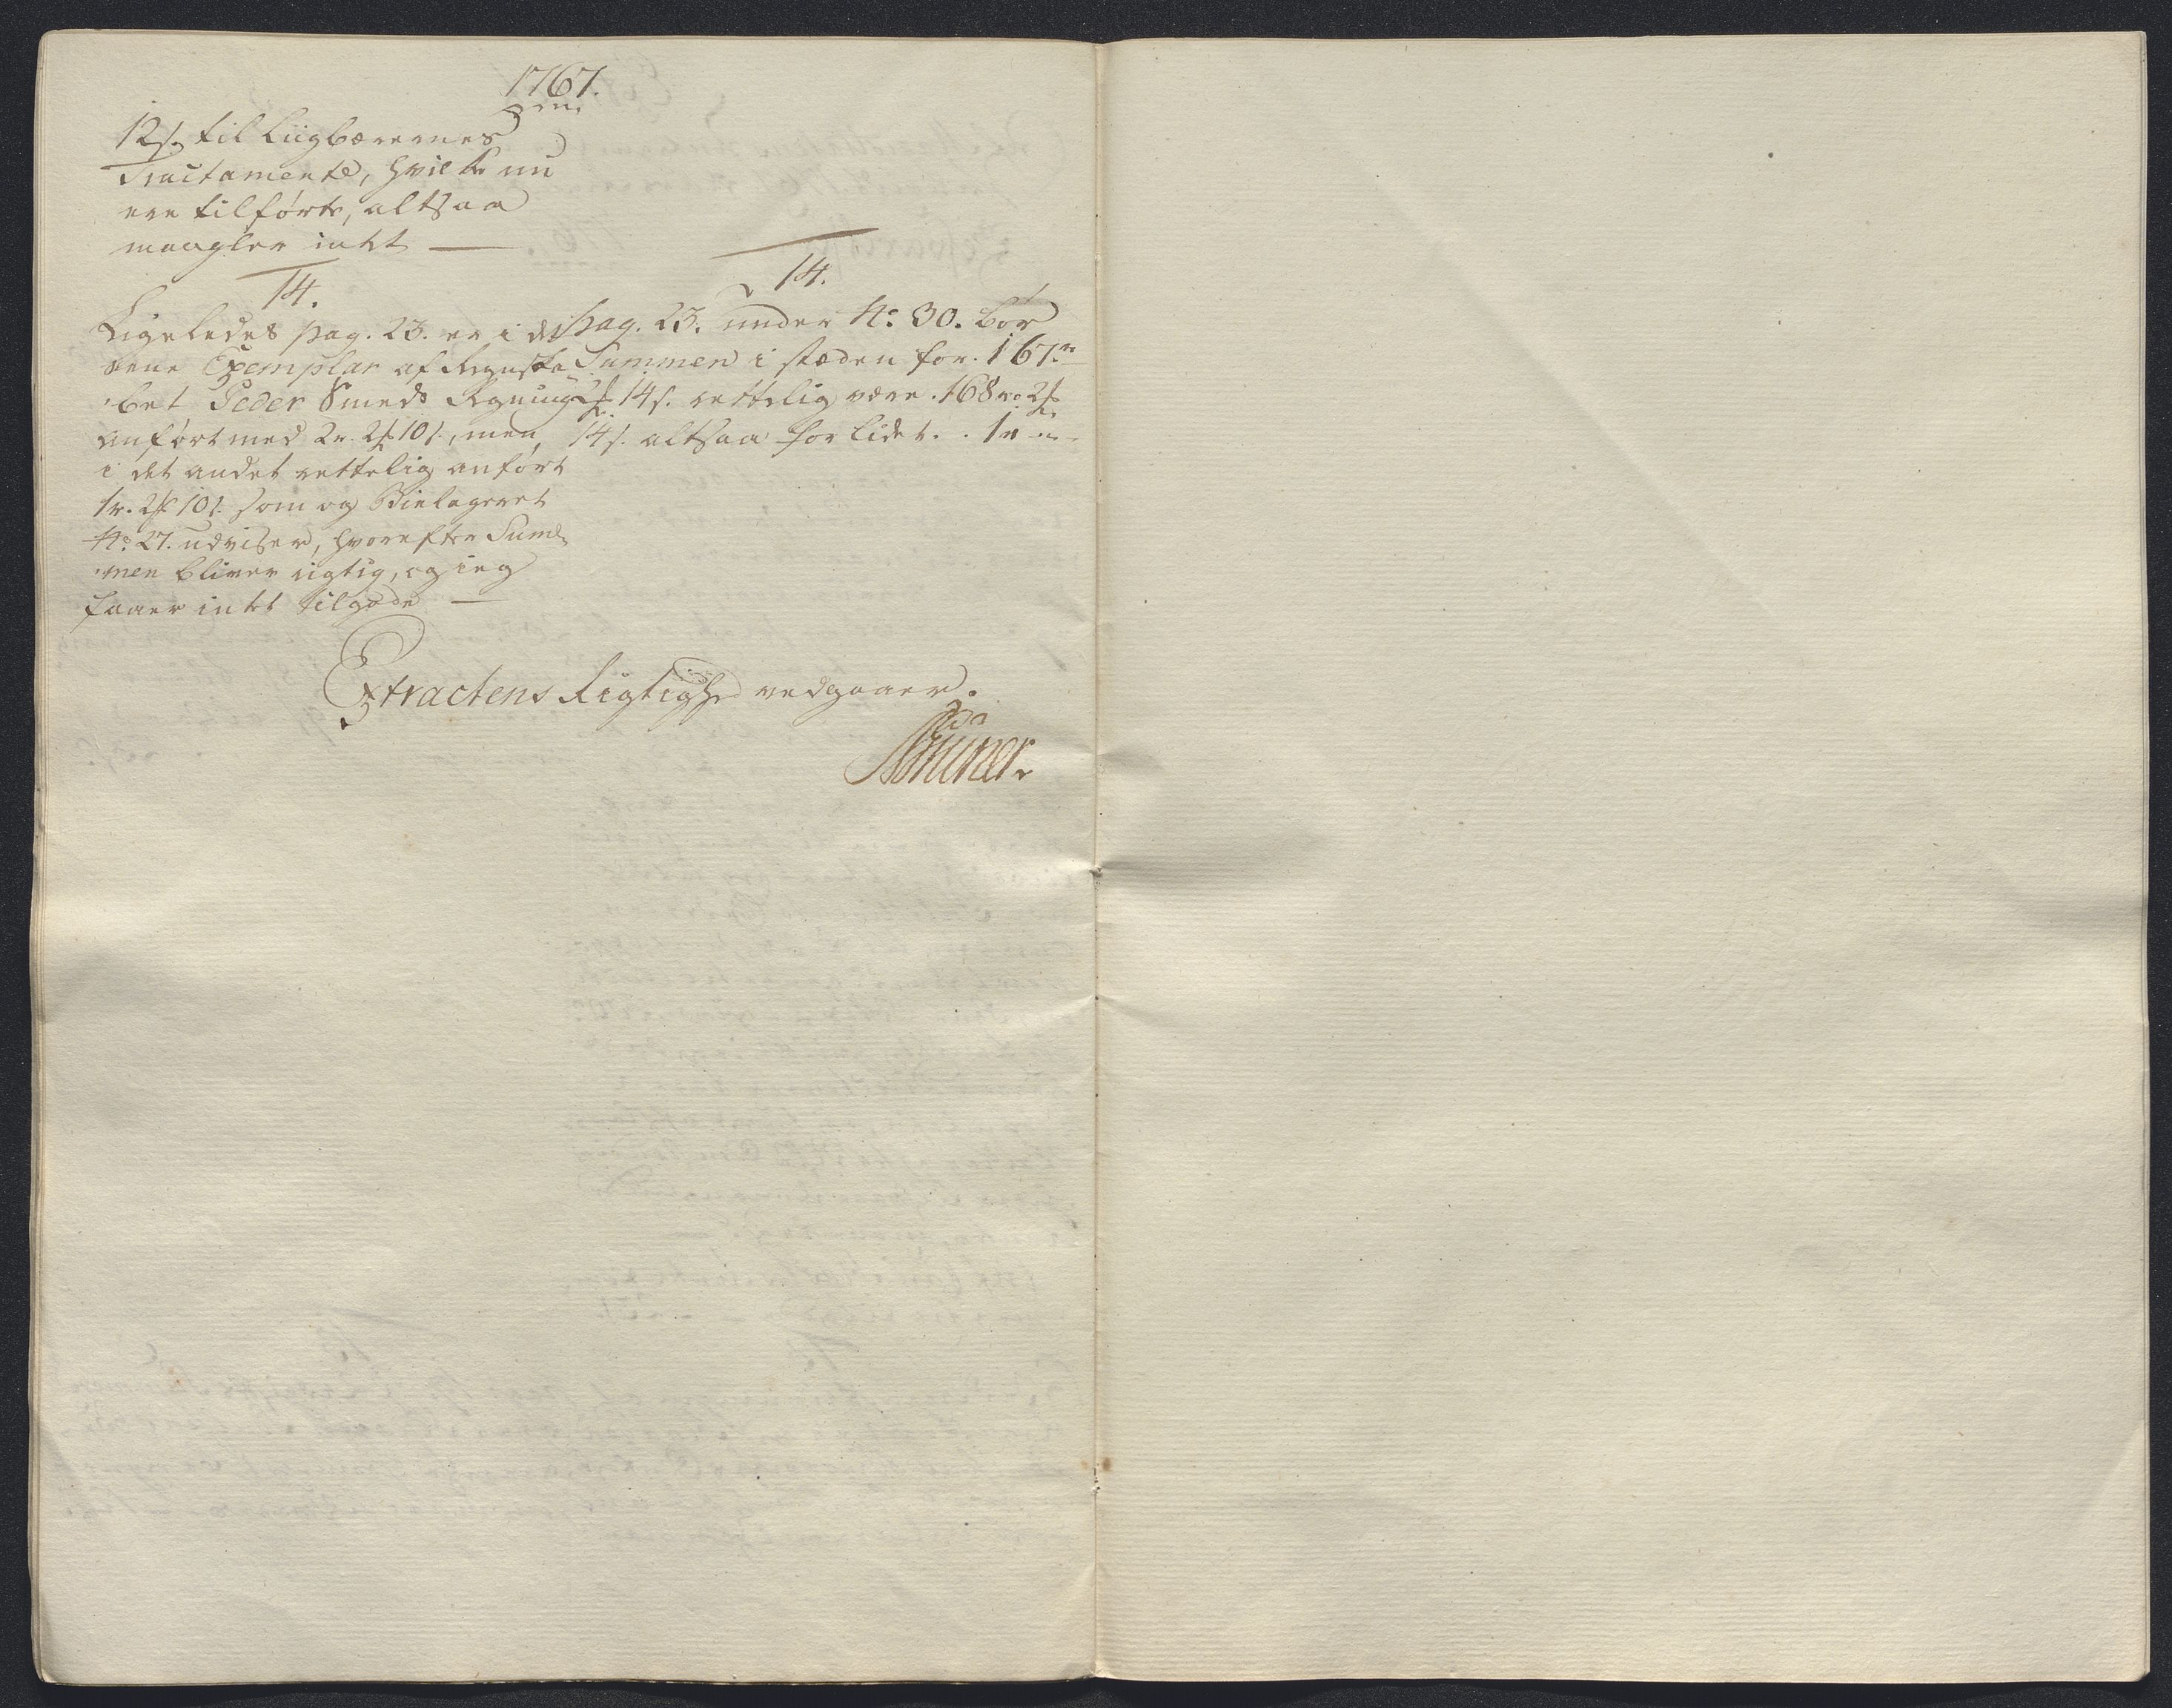 1767.
12 s. til Liigbærernes
Tractamente, hvilke nu
ere tilført, altsaa
mangler intet —
14.
Ligeledes pag. 23. er i det
eene Exemplar af Regnska-
bet Peder Smeds Regning
anført med 2 r. 2 ℔ 10 s., men
i det andet rettelig anført
1 r. 2 ℔ 10 s. som og Bielagerne
No. 27. udviser, hvorefter Sum-
men bliver rigtig, og ieg
faaer intet tilgode —
14.
pag. 23. under No. 30. bør
Summen i stæden for 167 r.
2 ℔ 14 s. rettelig være 168 r. 2 ℔
14 s. altsaa for lidet . . 1 r.
Extractens Rigtighed vedgaaer.